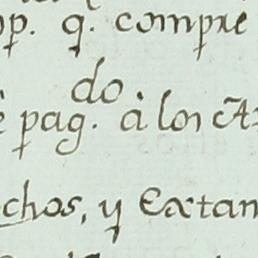 op. q. compre
do
pag. á los
chos, y Extan